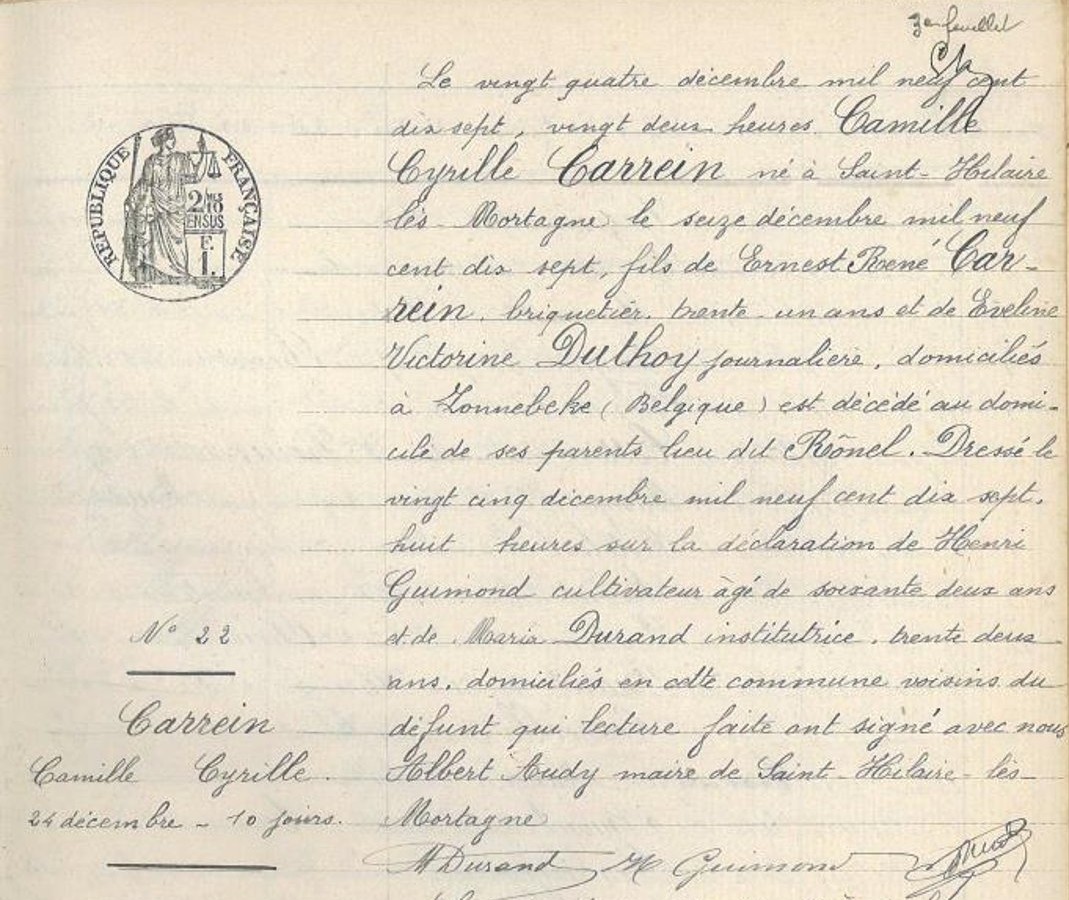 3e feuillet
Le vingt quatre décembre mil neuf cent
dix sept, vingt deux heures, Camille
Cyrille Carrein né à Saint-Hilaire
lès-Mortagne le seize décembre mil neuf
cent dix sept, fils de Ernest René Car-
rein, briquetier, trente-un ans et de Eveline
Victorine Duthoy journalière, domiciliés
à Zonnebeke (Belgique) est décédé au domi-
cile de ses parents lieu dit Rônel. Dressé le
vingt cinq décembre mil neuf cent dix sept,
huit heures sur la déclaration de Henri
Guimond cultivateur âgé de soixante deux ans
et de Maria Durand institutrice, trente deux
ans, domiciliés en cette commune voisins du
défunt qui lecture faite ont signé avec nous
Albert Audy maire de Saint-Hilaire-lès-
Mortagne
M Durand H Guimond
REPUBLIQUE FRANÇAISE
2/10
EN SUS
F.
1.
No 22
Carrein
Camille Cyrille.
24 décembre - 10 jours.